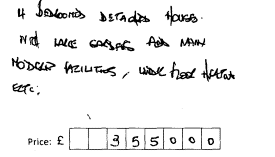 4 BEDROOMED DETACHED HOUSE.
WITH LARGE GARDENS AND MAIN
MODERN FACILITIES, UNDER FLOOR HEATING
ETC;
Price: £ 3 5 5 0 0 0